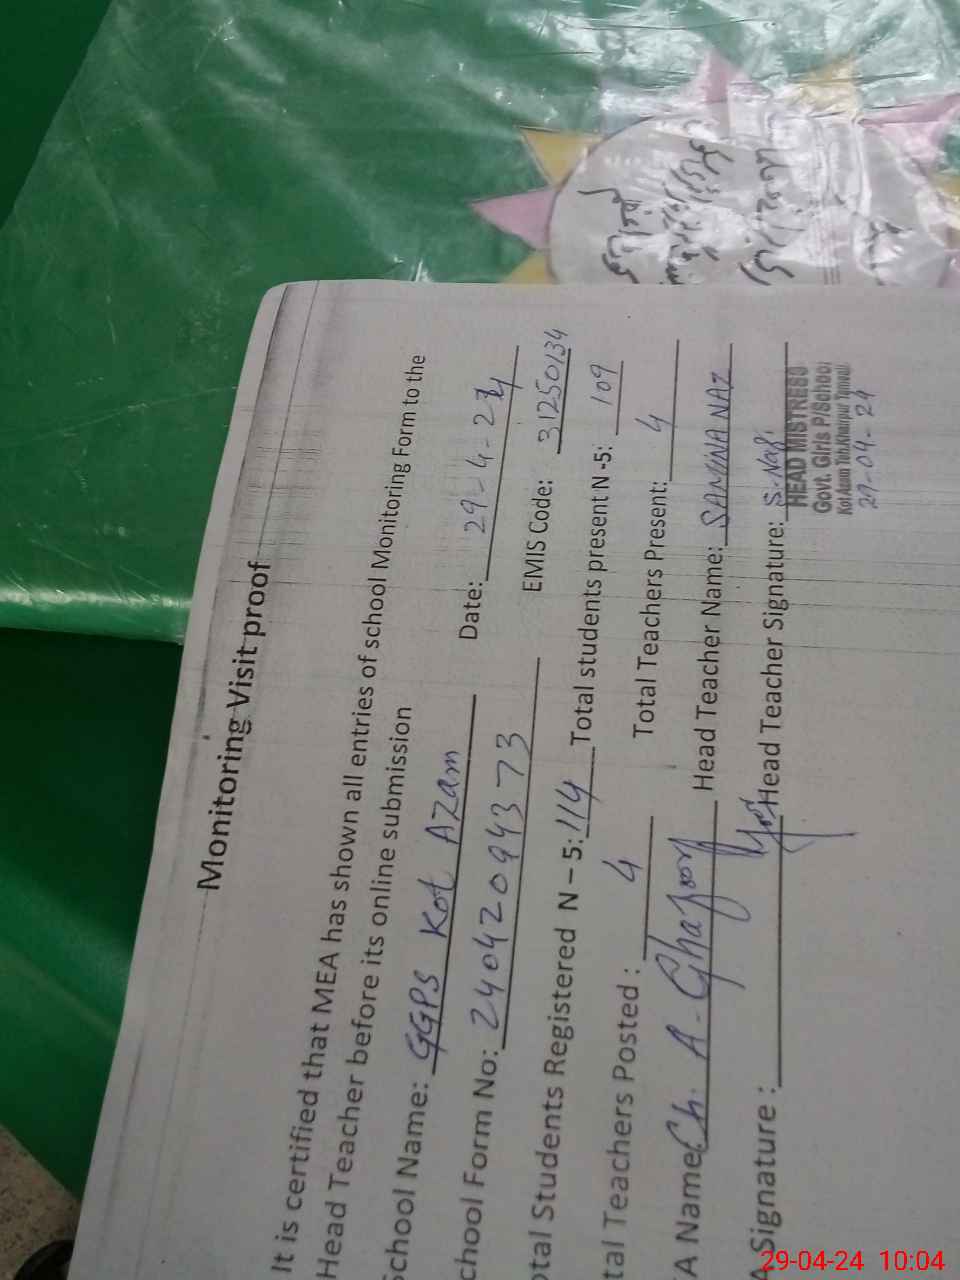 Monitoring Visit proof
It is certified that MEA has shown all entries of school Monitoring Form to the
Head Teacher before its online submission
School Name: GGPS Kot Azam Date: 29-4-24
chool Form No: 24042094373 EMIS Code: 31250134
otal Students Registered N – 5: 114 Total students present N -5: 109
tal Teachers Posted : 4 Total Teachers Present: 4
A Name Ch. A- Ghafoor Head Teacher Name: SAMINA NAZ
Signature : Head Teacher Signature: S. Naz
HEAD MISTRESS
Govt. Girls P/School
Kot Azam Teh.Khanpur
29-04-24
29-04-24 10:04